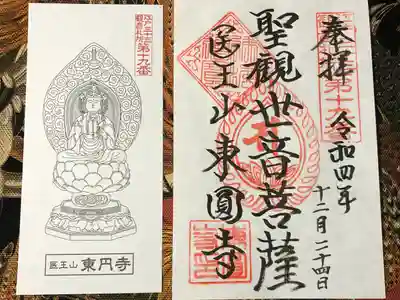 江戸三十三
観音札所
第十九番
医王山 東円寺
奉拝
第十九番
令和四年
十二月二十四日
聖観世音菩薩
医王山東圓寺